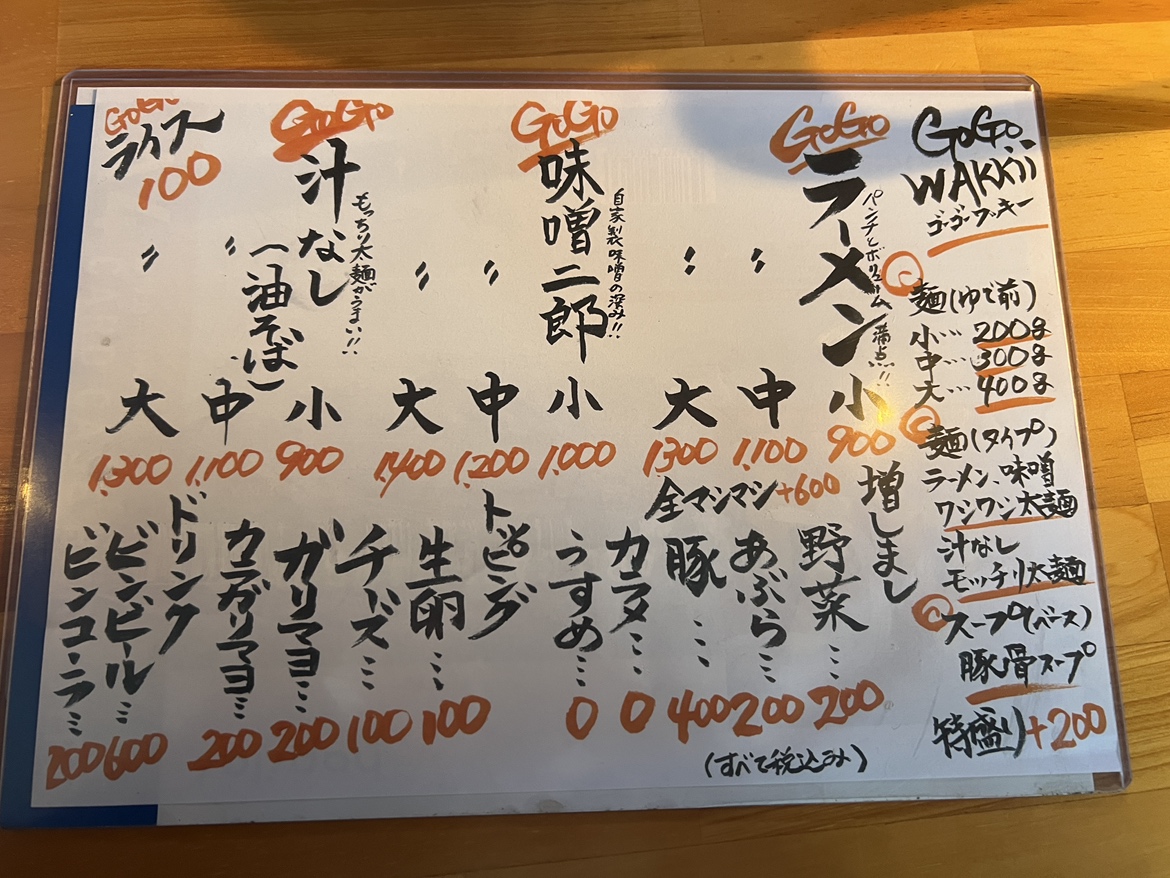 GoGo
WAKKii
ゴーゴーワッキー
麺(ゆで前)
小…200g
中…300g
大…400g
麺(タイプ)
ラーメン、味噌
ワシワシ太麺
汁なし
モッチリ太麺
スープ(ベース)
豚骨スープ
特盛り+200
GoGo
ラーメン
パンチとボリューム満点!!
小 900
〃 中 1,100
〃 大 1300
GoGo
味噌二郎
自家製味噌の深み!!
小 1,000
〃 中 1,200
〃 大 1,400
GoGo
汁なし
(油そば)
もっちり太麺がうまい!!
小 900
〃 中 1,100
〃 大 1,300
GoGo
ライス
100
増しまし
全マシマシ+600
野菜…200
あぶら…200
豚…400
カラメ…0
うすめ…0
トッピング
生卵…100
チーズ…100
ガリマヨ…200
カラガリマヨ…200
ドリンク
ビンビール…600
ビンコーラ…200
(すべて税込み)